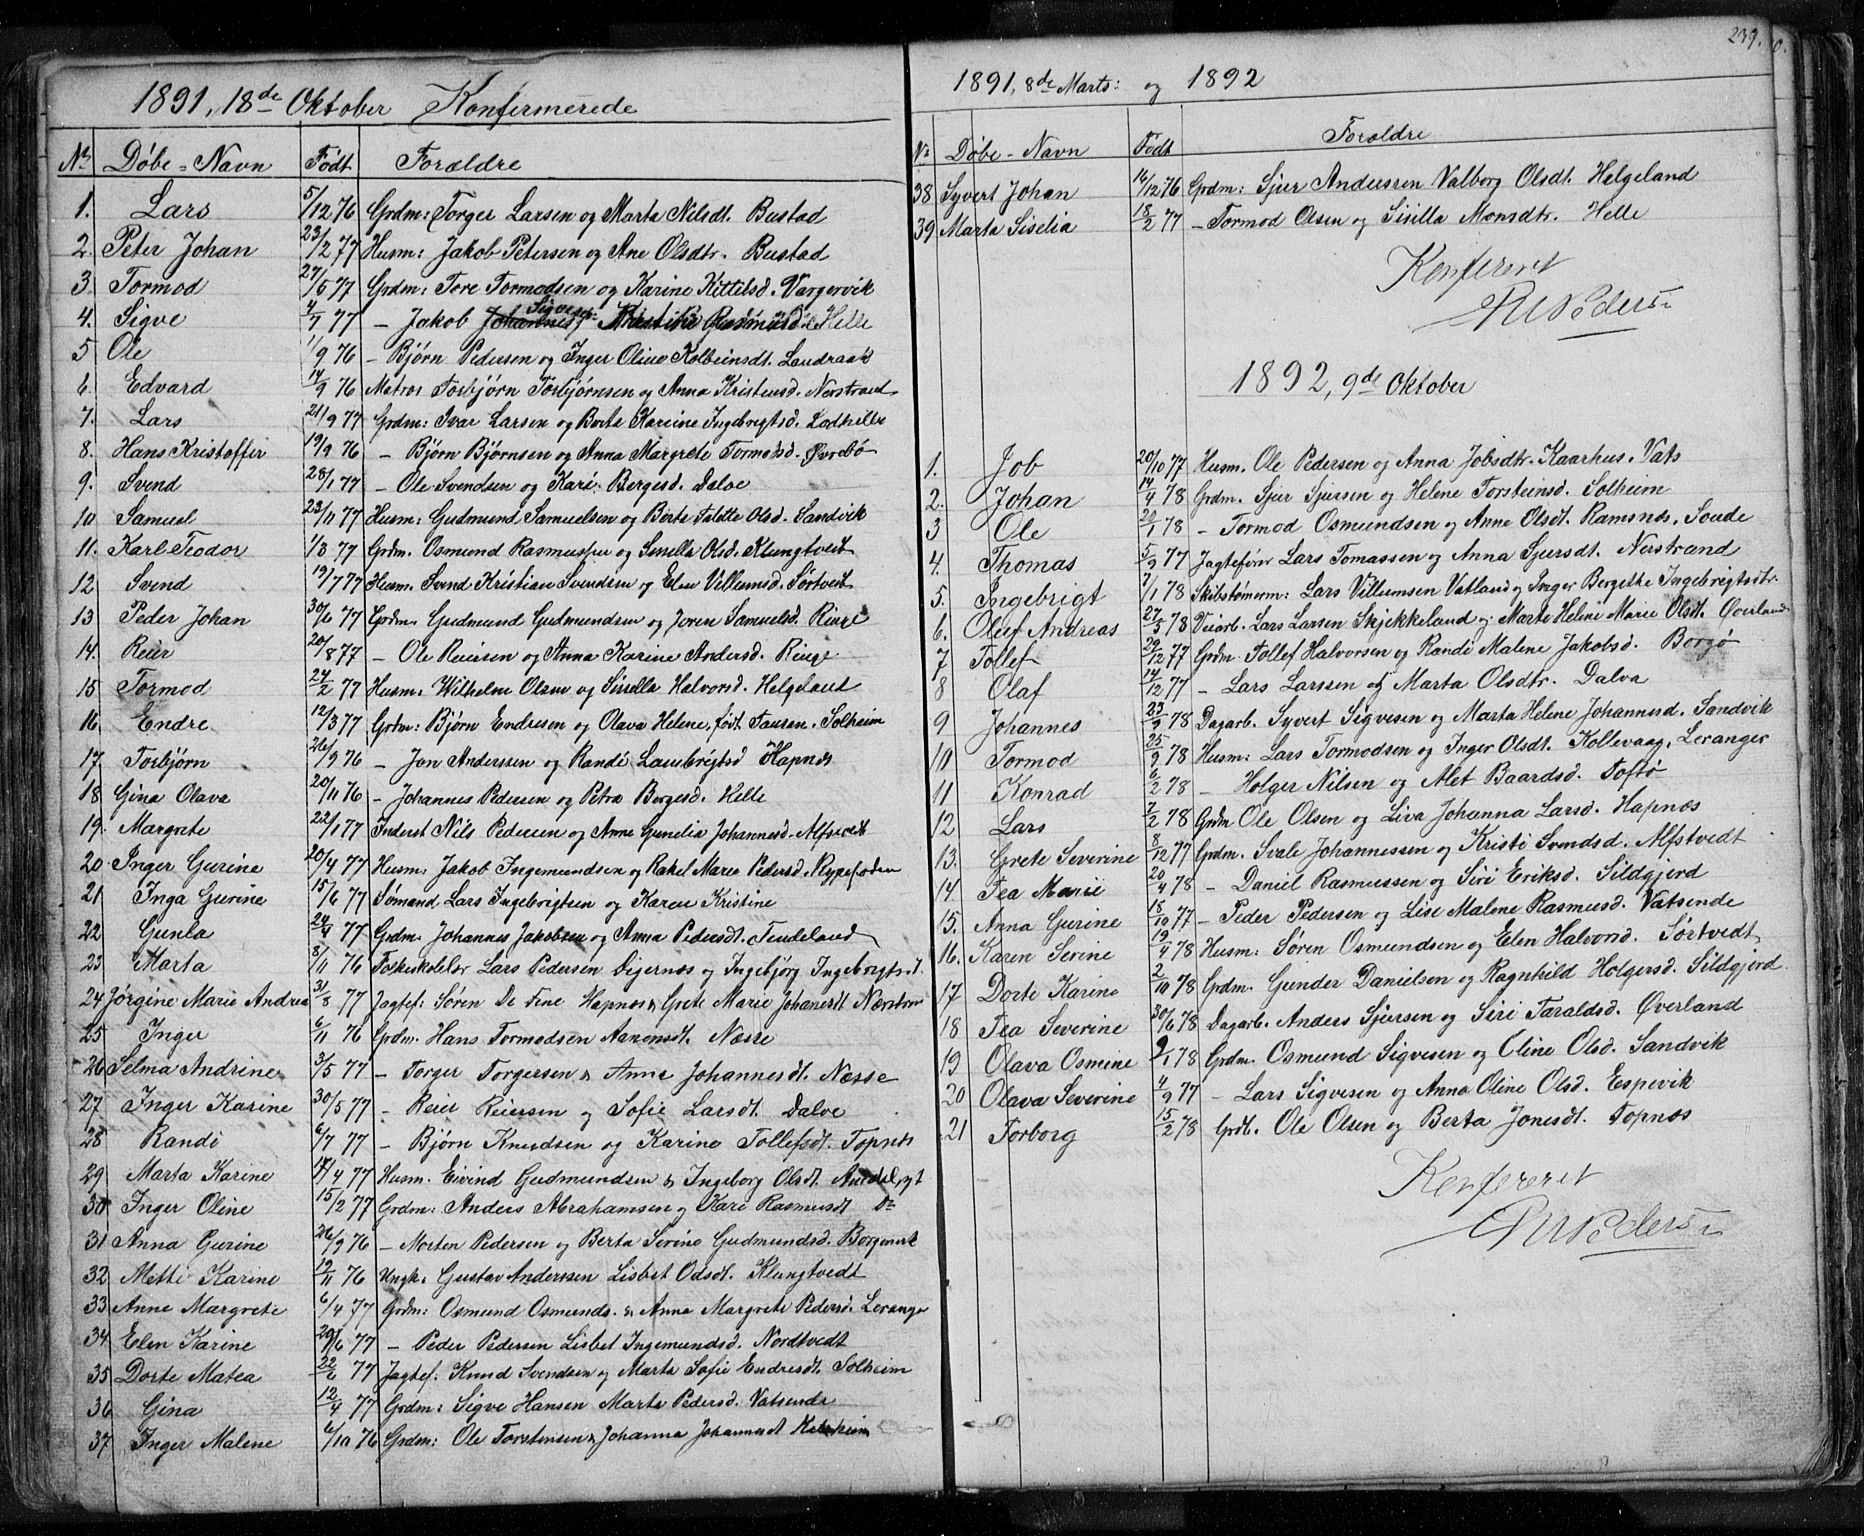 1891, 18de Oktober Konfermerede
No Døbe-Navn Født. Forældre
1. Lars 5/12 76 Grdm: Torger Larsen og Marta Nilsdt. Bustad
2. Peter Johan 23/2 77 Husm: Jakob Petersen og Ane Olsdtr. Bustad
3. Tormod 27/5 77 Grdm: Tore Tormodsen og Karine Kittelsd. Vargervik
4. Sigve 4/7 77 – Jakob Sigvesen Helle
5 Ole 1/9 76 – Bjørn Pedersen og Inger Oline Kolbeinsdt. Landraak
6. Edvard 14/9 76 Matros Torbjørn Torbjørnsen og Anna Kristensd. Nerstrand
7. Lars 21/9 77 Grdm: Ivar Larsen og Berte Karine Ingebrigtsd. Lodhille
8. Hans Kristoffer 19/9 76 – Bjørn Bjørnsen og Anna Margrete Tormodsd. Øvrebø
9. Svend 28/1 77 – Ole Svendsen og Kari Bergesd. Dalve
10 Samuel 23/11 77 Husm: Gudmund Samuelsen og Berte Olsd. Sandvik
11. Karl Teodor 1/3 77 Grdm. Osmund Rasmussen og Sisella Olsd. Klungtveit
12 Svend 19/7 77 Husm: Svend Kristian Svendsen og Elen Villumsd. Sørtveit
13 Peder Johan 30/6 77 Grdm. Gudmund Gudmundsen og Joren Samuelsd. Ringe
14. Reier 20/8 77 – Ole Reiersen og Anna Karine Andersd. Ringe
15 Tormod 24/2 77 Husm. Wilhelm Olsen og Sissella Halvorsd. Helgeland
16. Endre 12/3 77 Grdm: Bjørn Endresen og Olava Helene, født Tausen. Solheim
17. Torbjørn 26/9 76 – Jan Anderssen og Randi Lambrigtsd Hapnes
18 Gina Olava 20/11 76 – Johannes Pedersen og Petra Borgesd. Helle
19. Margrete 22/1 77 Inderst Nils Pedersen og Anne Gunelia Johannesd. Alfstveit
20. Inger Gurine 20/4 77 Husm: Jakob Ingemundsen og Rakel Marie Pedersd.
21 Inga Gurine 15/6 77 Sømand Lars Ingebrigtsen og Karen Kristine
22 Gunla 24/4 77 Grdm. Johannes Jakobsen og Anna Pedersdt. Tendeland
23 Marta 8/11 76 Folkeskolelær Lars Pedersen Digernæs og Ingebjørg Ingebrigtsdt.
24 Jørgine Marie Andrea 31/8 77 Jagtef: Søren De Fine Hapnes & Grete Marie Johanesdt Nærstran
25 Inger 6/11 76 Grdm. Hans Tormodsen Aanensdt. Næsse
26 Selma Andrine 3/5 77 – Torger Torgersen & Anne Johannesdt. Næsse
27 Inger Karine 30/5 77 – Reier Reiersen og Sofie Larsdt. Dalve
28 Randi 6/7 77 – Bjørn Knudsen og Karine Tollefsdt. Topnes
29 Marta Karine 14/4 77 Husm. Eivind Gudmundsen & Ingeborg Olsdt.
30 Inger Oline 15/2 77 Grdm: Anders Abrahamsen og Kari Rasmusdt Do
31 Anna Gurine 26/9 76 – Morten Pedersen og Berta Serine Gudmundsd. Borgenvik
32 Mette Karine 19/11 76 Ungk: Gustav Anderssen Lisbet Odsdt. Klungtvedt
33 Anne Margrete 6/4 77 Grdm: Osmund Osmunds. & Anna Margrete Pedersd. Leranger
34 Elen Karine 29/6 77 – Peder Pedersen Lisbet Ingemundsd. Nordtvedt
35 Dorte Matea 22/6 77 Jagtef: Knud Svendsen og Marta Sofie Endresdt. Solheim
36 Gina 12/4 77 Grdm: Sigve Hansen Marta Pedersd. Vatsende
37 Inger Malene 6/10 76 Grdm: Ole Torstensen & Johanna Johannesdt
239.
1891, 8de Marts: og 1892
Nr Døbe-Navn Født Foraldre
38 Syvert Johan 14/12 76 Grdm: Sjur Anderssen Valborg Olsdt. Helgeland
39 Marta Siselia 18/2 77 – Tormod Olsen og Sisilla Monsdtr. Helle
Konfereret
1892, 9de Oktober
1. Job 20/10 77 Husm. Ole Pedersen og Anna Jobsdtr. Kaarhus. Vats
2. Johan 14/4 78 Grdm. Sjur Sjursen og Helene Torsteinsd. Solheim
3 Ole 20/1 78 – Tormod Osmundsen og Anne Olsdt. Ramsnes, Soude
4. Thomas 5/9 77 Jagtefører Lars Tomassen og Anna Sjursdt. Nerstrand
5. Ingebrigt 7/1 78 Skibstømerm: Lars Villumsen Vatland og Inger Bergethe Ingebrigtsdtr.
6. Oluf Andreas 27/3 78 Veiarb. Lars Larsen Skjekkeland og Marte Helene Marie Olsdt. Øverland
7 Tollef 29/12 77 Grdm. Tollef Halvorsen og Randi Malene Jakobsd. Borgø
8 Olaf 14/12 77 – Lars Larssen og Marta Olsdtr. Dalva
9 Johannes 23/9 78 Dagarb. Syvert Sigvesen og Marta Helene Johannesd. Sandvik
10 Tormod 25/9 78 Husm: Lars Tormodsen og Inger Olsdt. Kollevaag, Leranger
11 Konrad 6/2 78 – Holger Nilsen og Alet Baardsd. Toftø
12 Lars 7/2 78 Grdm Ole Olsen og Liva Johanna Larsd. Hapnæs
13. Grete Severine 8/12 77 Grdm. Svale Johannessen og Kristi Svendsd. Alfstvedt
14. Tea Marie 20/4 78 – Daniel Rasmussen og Siri Eriksd. Sildgjerd
15. Anna Gurine 18/10 77 – Peder Pedersen og Lise Malene Rasmusd. Vatsende
16. Karen Serine 19/4 78 Husm: Søren Osmundsen og Elen Halvorsd. Sørtvedt
17 Dorte Karine 2/10 78 Grdm. Gunder Danielsen og Ragnhild Holgersd. Sildgjerd.
18 Tea Severine 30/6 78 Dagarb. Anders Sjursen og Siri Taraldsd. Øverland
19 Olava Osmine 9/1 78 Grdm. Osmund Sigvesen og Eline Olsd. Sandvik
20 Olava Severine 4/9 77 – Lars Sigvesen og Anna Oline Olsd. Espevik
21 Torborg 15/2 78 Grdb. Ole Olsen og Berta Jonesdt. Topnæs
Konfereret